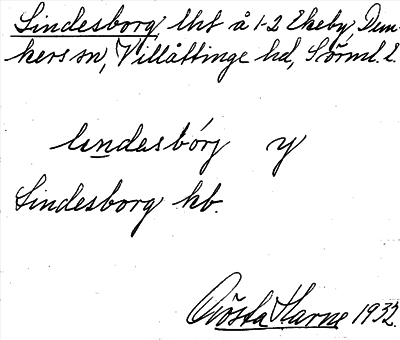 Lindesborg lht å 1-2 Ekeby, Dun-
kers sn, Villåttinge hd, Sörml. l.
lındesbórj y
Lindesborg kb.
Gösta Harne 1932.